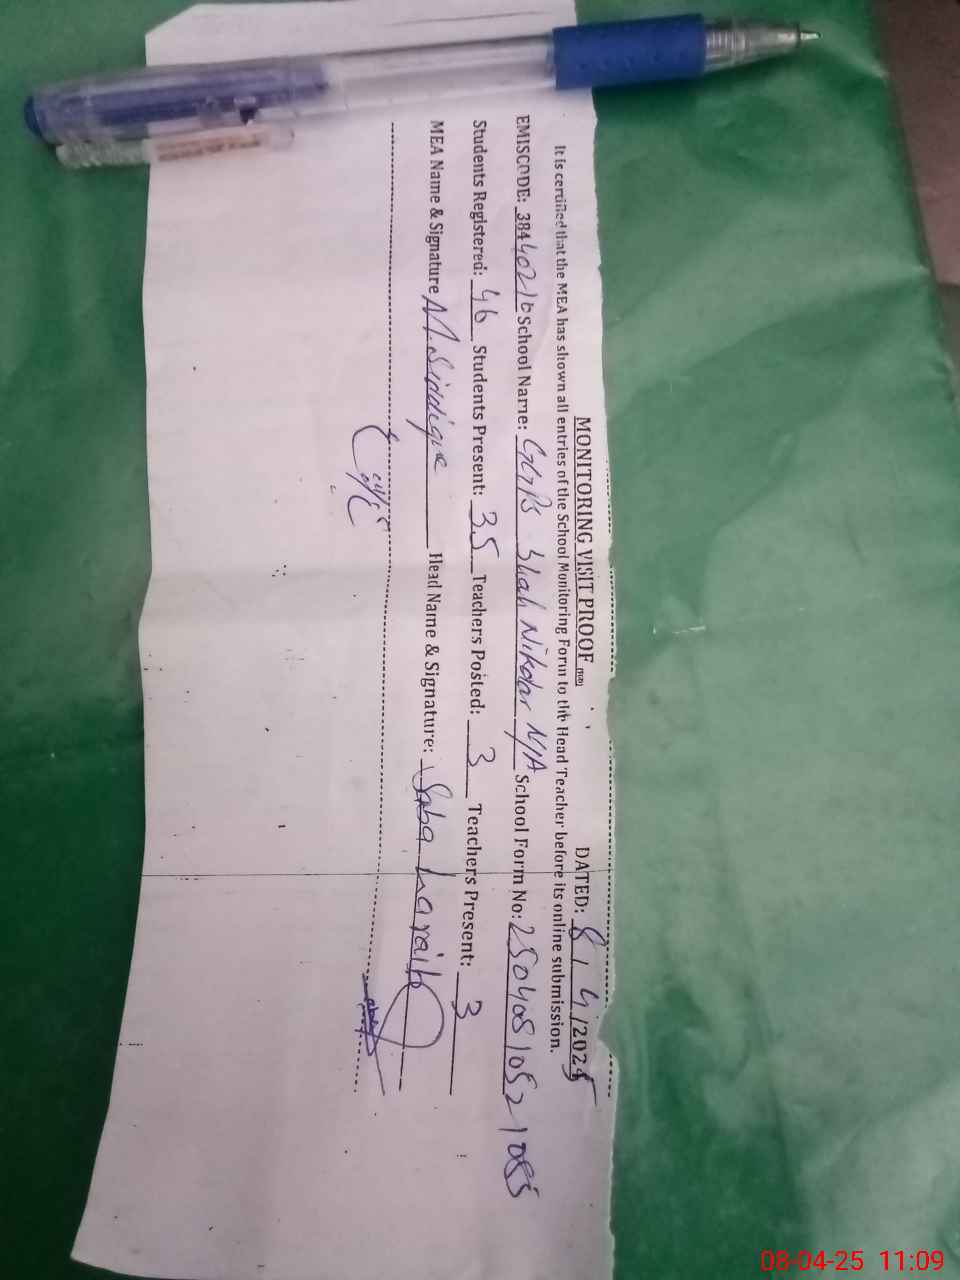 MONITORING VISIT PROOF (MEA) DATED: 8/4/2025
It is certified that the MEA has shown all entries of the School Monitoring Form to the Head Teacher before its online submission.
EMISCODE: 38440216 School Name: GGPS Shah Nikdar N/A School Form No: 25040810521085
Students Registered: 46 Students Present: 35 Teachers Posted: 3 Teachers Present: 3
MEA Name & Signature M. Siddique Head Name & Signature: Saba
08-04-25 11:09